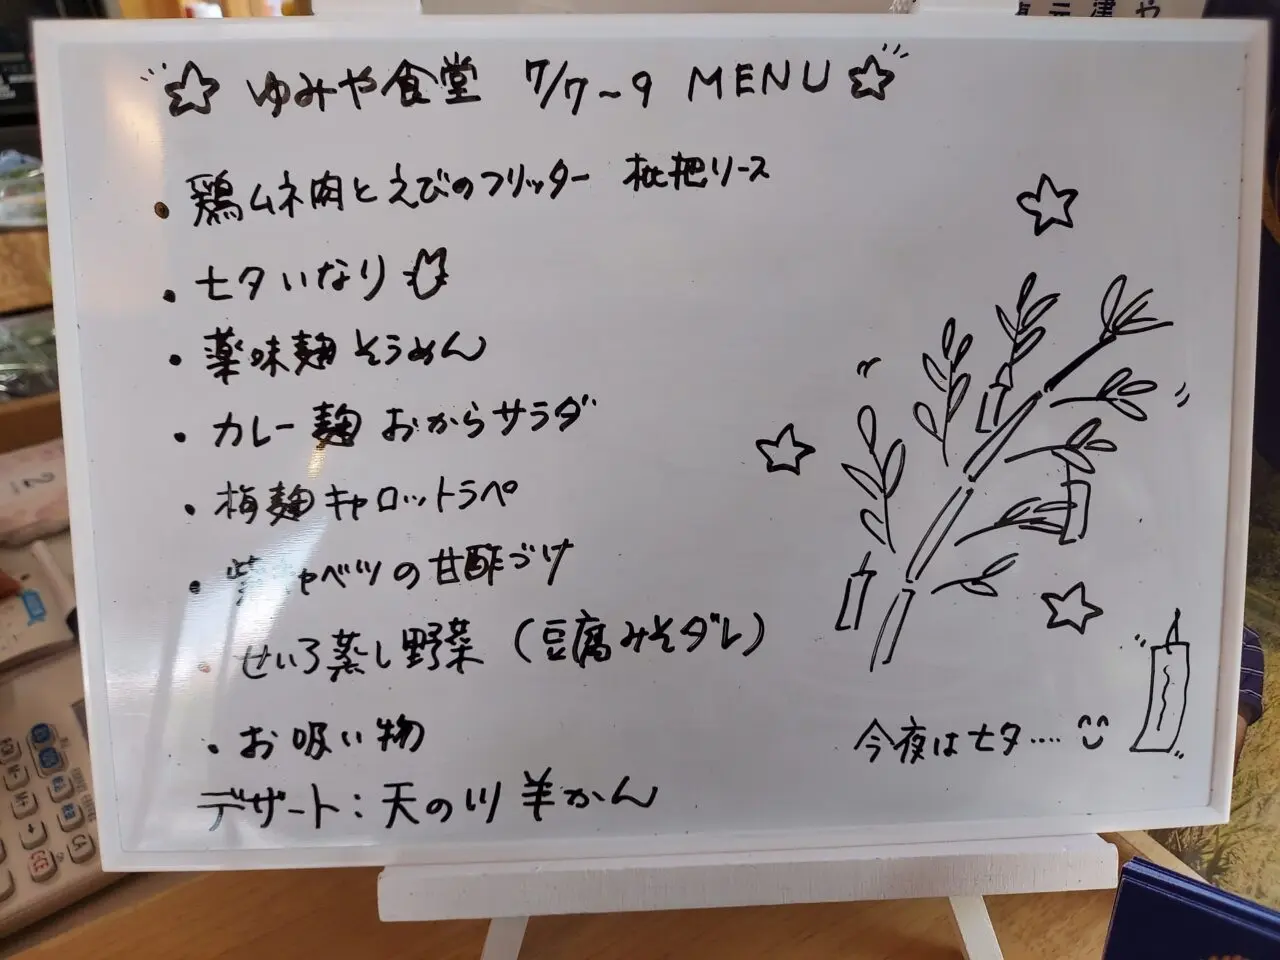 ☆ ゆみや食堂 7/7~9 MENU ☆
・鶏ムネ肉とえびのフリッター 枇杷ソース
・七夕いなり
・薬味麹そうめん
・カレー麹 おからサラダ
・梅麹キャロットラペ
・紫キャベツの甘酢づけ
・せいろ蒸し野菜（豆腐みそダレ）
・お吸い物
デザート：天の川羊かん
今夜は七夕....